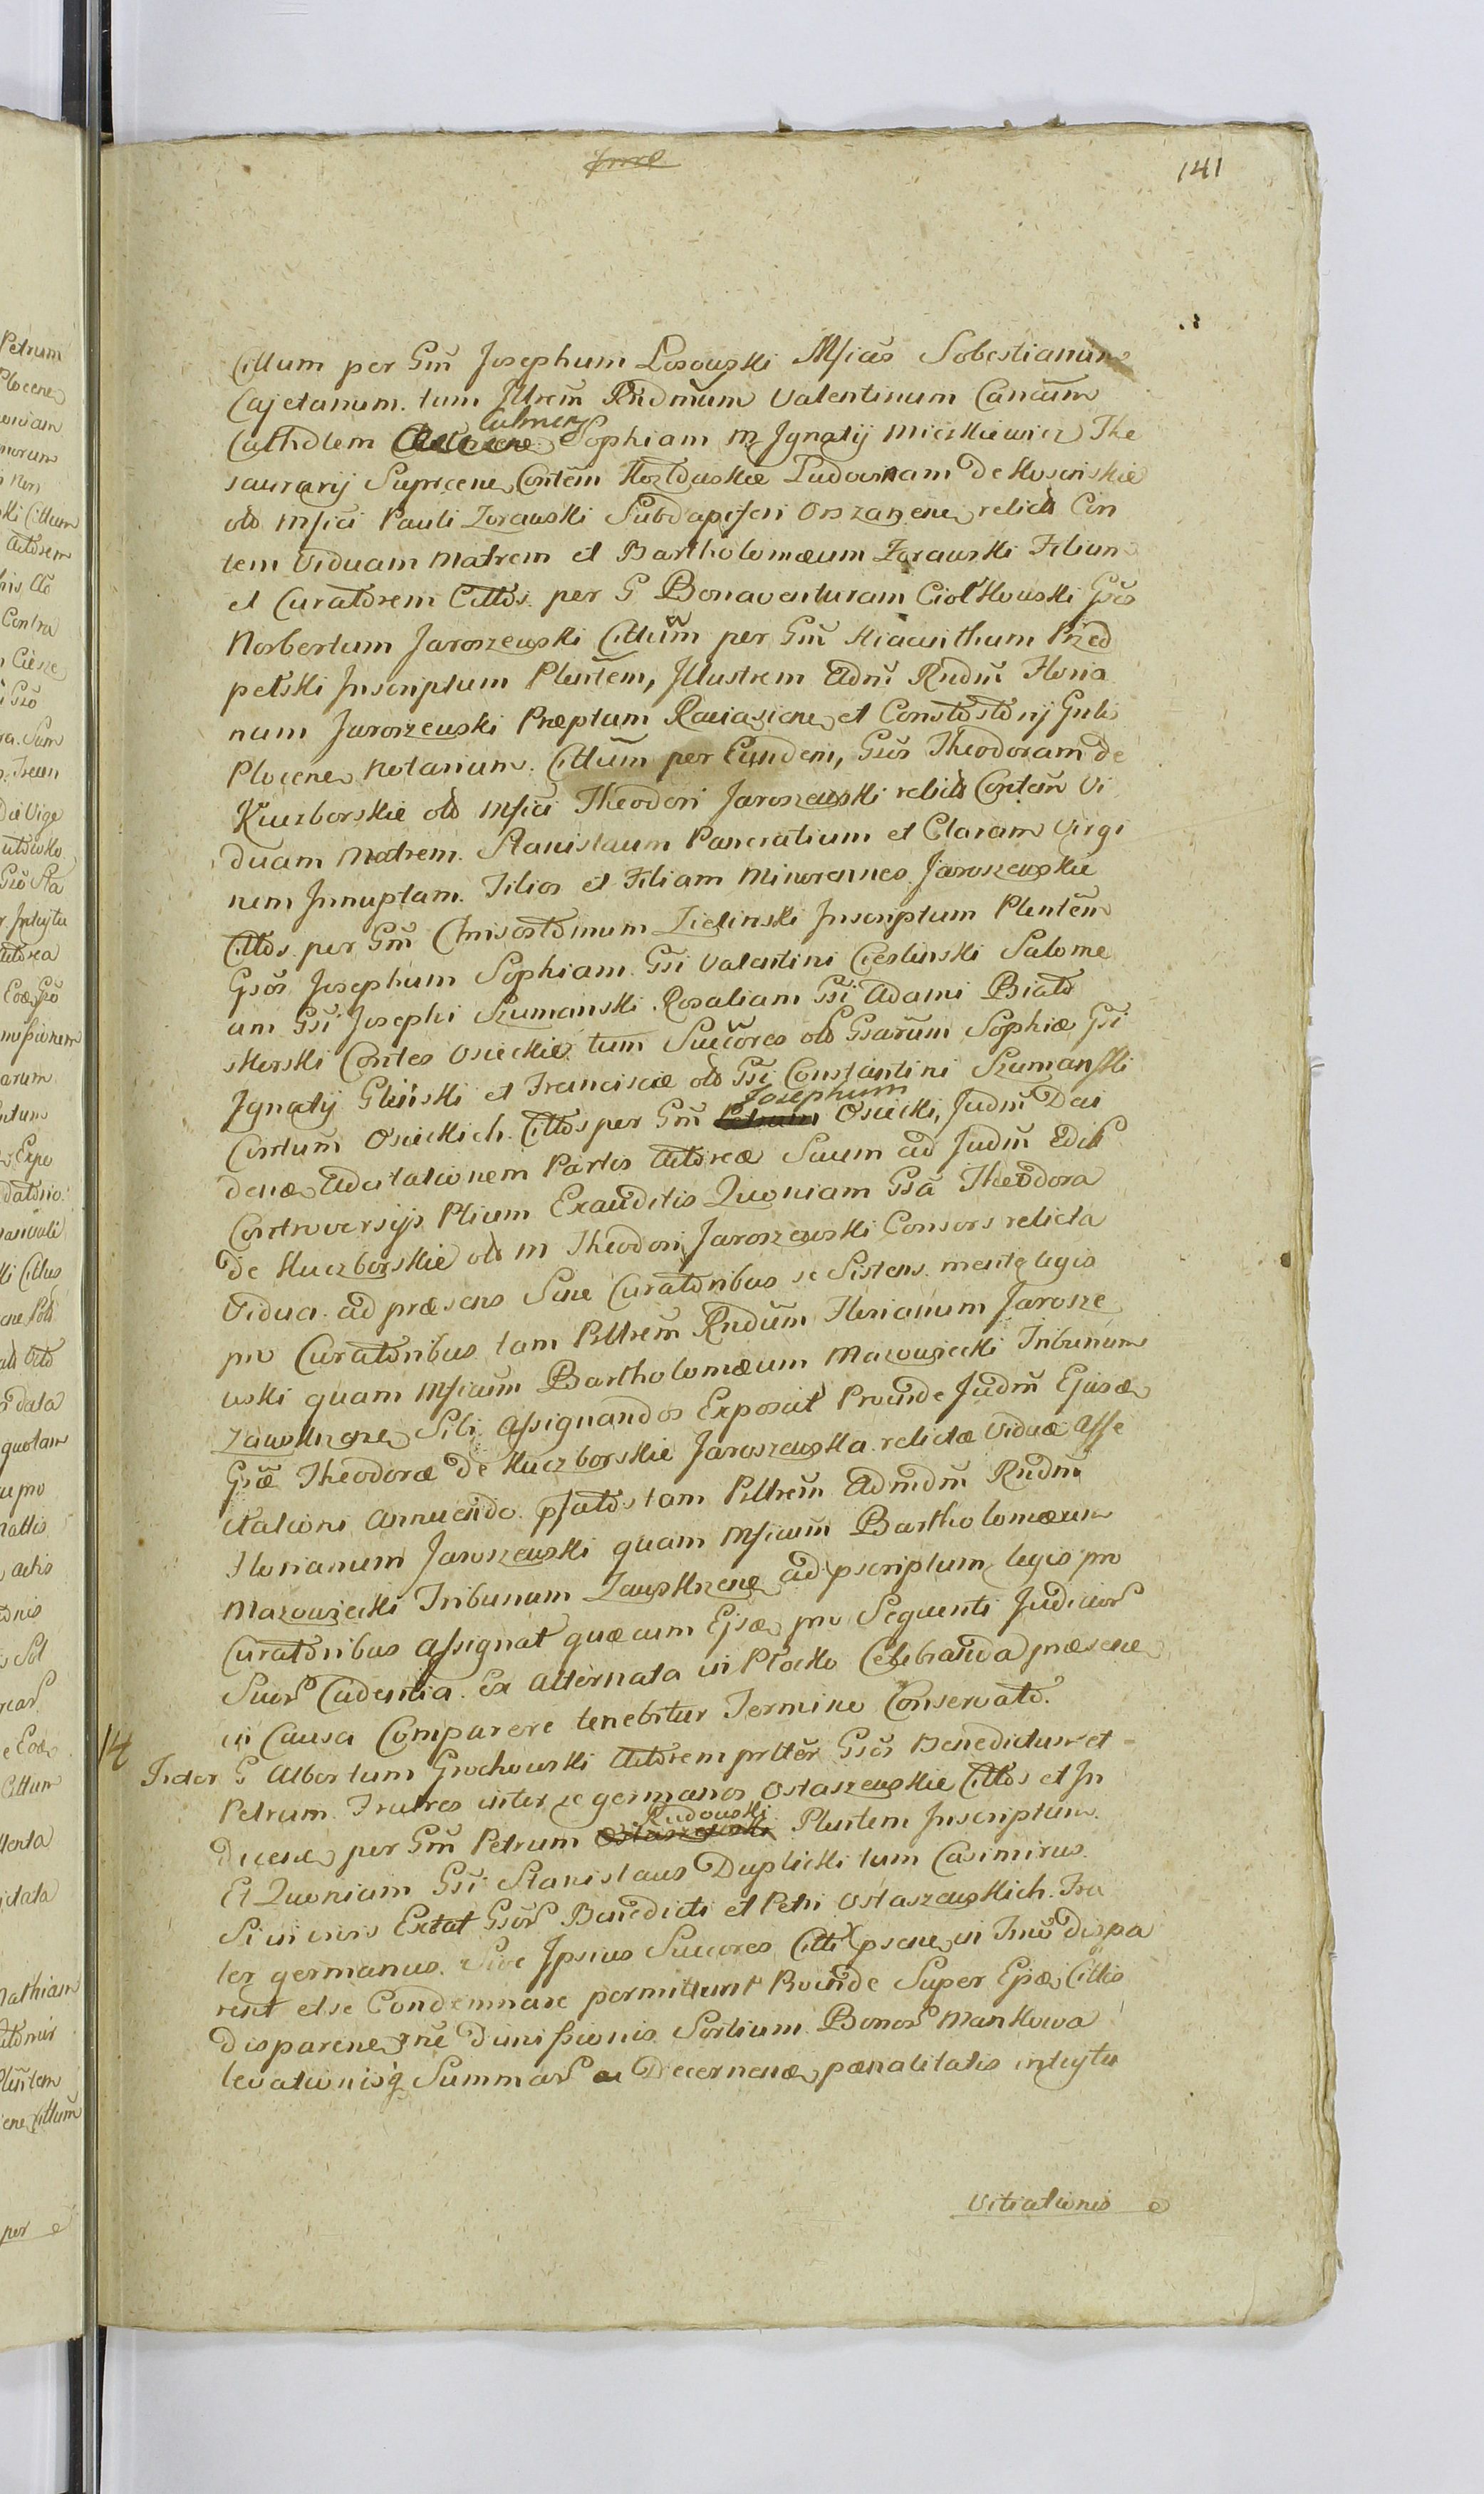 141
Cittum per Gm̃ Josephum Losowski Mficũs Sobestianum
Cajetanum. tum Jllrem̃ Rndm̃um Valentinum Cancũm
Culmen
Cathdlem Sophiam M Jgnatij Mieszkiewicz The
saurarij Contem̃ Ludovicam de Kosinskie
olo Mfici Pauli Zorawski Subdapiferi Orszanen relictã Con
tem Viduam Matrem et Bartholomæum Zorawski Filium
et Curatorem Cittos. per G Bonaventuram Ciołkowski Gsõs
Norbertum Jaroszewski Cittum̃ per Gm̃ Hiacinthum Przed
pełski Jnscriptum Plentem̃, Jllustrem Adm̃ Rndm̃ Floria
num Jaroszewski Præptum Raciazien et Constostorij Gnlis
Plocene Notarium. Cittum̃ per Eundem, Gsõs Theodoram de
Kuczborskie olo Mfici Theodori Jaroszewski relictã Contem̃ Vi
duam Matrem. Stanislaum Pancratium et Claram Virgi
nem Jnnuptam. Filios et Filiam Minorennes Jaroszewskie
Cittos per Gm̃ Chrisostomum Zielinski Jnscriptum Plentem̃
Gsõs Josephum Sophiam. Gsĩ Valentini Cieslinski Salome
am Gsĩ Josephi Szumanski. Rosaliam Gsĩ Adami Biało
skorski Contes Osieckie. tum Succõres olo Gsarũm Sophiæ Gsĩ
Jgnatij Glinski et Franciscæ olo Gsĩ Constantini Szumanski
Josephum
Contum̃ Osieckich. Cittos per Gm̃ Petrum Osiecki, Judm̃ Dei
denæ Adcitationem Partis Actoreæ Suum ad Judm̃ Edit
Controversijs Ptium Exauditis Quoniam Gsã Theodora
de Kuczborskie olo M Theodori Jaroszewski Consors relicta
Vidua. ad præsens Sine Curatoribus se Sistens. mente legis
pro Curatoribus tam Plltrem̃ Rndũm Florianum Jarosze
wski quam Mficum̃ Bartholomæum Mazowiecki Tribunum
Zawskrzene Sibi Assignandos Exposcit Proinde Judm̃ Ejusæ
Gsæ Theodoræ de Kuczborskie Jaroszewska relictæ Viduæ Affe
ctationi Annuendo. pfatos tam Plltrem̃ Admdm̃ Rndm̃
Florianum Jaroszewski quam Mficum̃ Bartholomæum
Mazowiecki Tribunum Zawskrzene ad pscriptum legis pro
Curatoribus Assignat quæ cum Ejsæ pro Sequenti Judicior
Suor Cadentia. Ex Alternata in Płocko Celebranda præsene
in Causa Comparere tenebitur Termino Conservato.
14
Jnter G Albertum Grochowski Actorem Gsõs Benedictum et
Petrum. Fratres inter se germanos Ostaszewskie Cittos et Jn
Rudowski
ducene per Gm̃ Petrum Ostaszewski Plentem Jnscriptum.
Et Quoniam Gsĩ Stanislaus Duplicki tum Casimirus.
Si in vivis Extat Gsor Benedicti et Petri Ostaszewskich. Fra
ter germanus. Sive Jpsius Succores Citti psene in Tm̃o dispa
rent et se Condemnare permittunt Proinde Super Ejsæ Cittis
disparene rne dimissionis Sortium Bonor Mankowa
levationisq Summar ac Decernenæ pænalitatis intuytu
Vitiationis